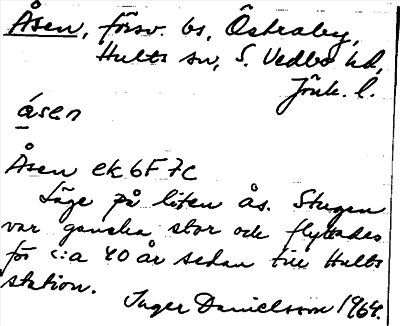 Åsen, försv. bs, Östraby,
Hults sn, S. Vedbo hd,
Jönk. l.
åsen
Åsen ek 6F7c
Läge på liten ås. Stugan
var ganska stor och flyttades
för c:a 40 år sedan till Hults
station.
Inger Danielsson 1964.